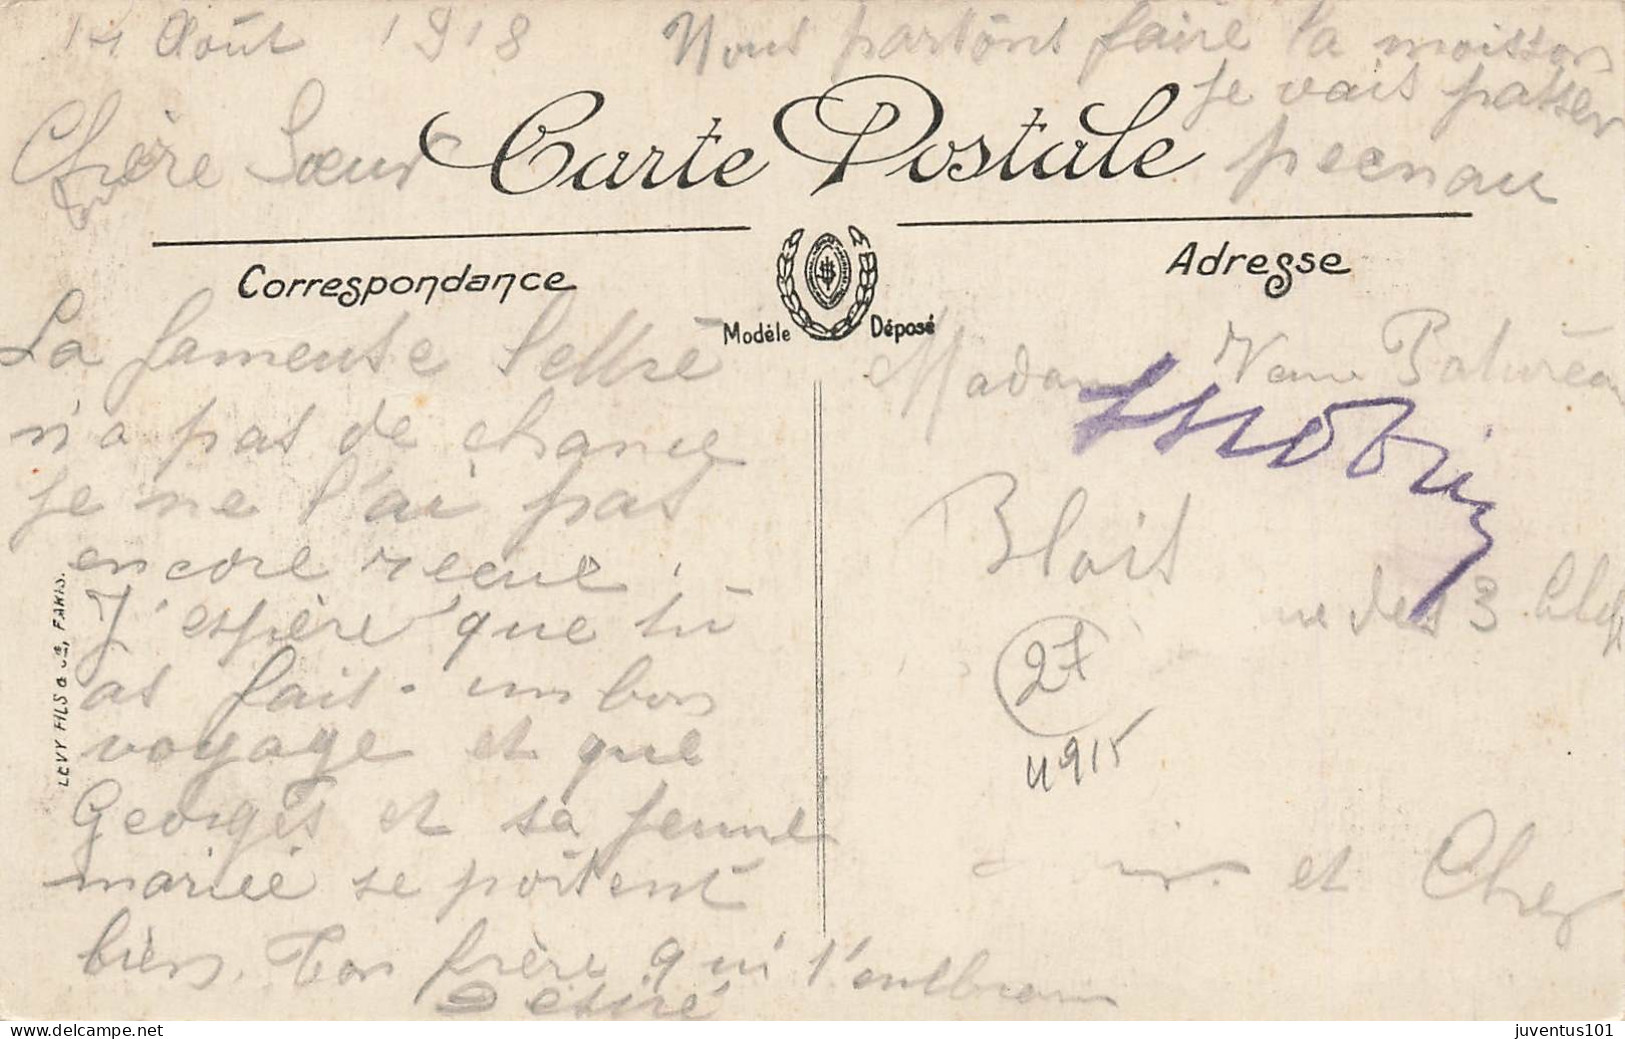 14 Août 1918 Nous partons faire la moisson
je vais passer
Chère Sœur
Carte Postale
Correspondance
Adresse
Modèle Déposé
La fameuse lettre
n'a pas de chance
je ne l'ai pas
encore reçue.
J'espère que tu
as fait un bon
voyage et que
Georges et sa femme
mariée se portent
bien. Ton frère qui t'embrasse
Désiré
Madame
Blois
rue des 3 Clefs
27
4915
et Cher
LEVY FILS & Cie, PARIS.
juventus101